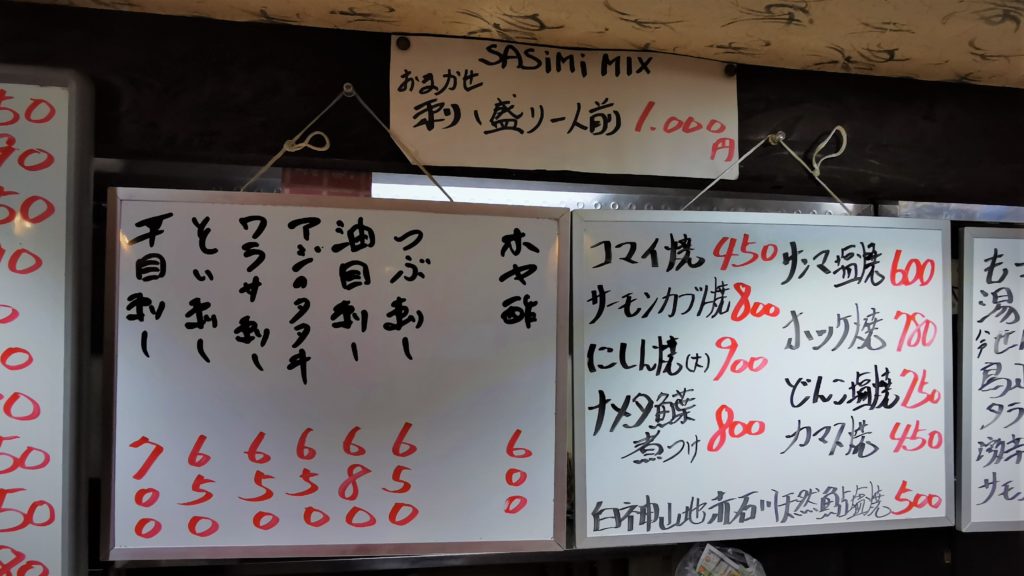 SASiMi MIX
おまかせ
刺し盛り一人前 1.000円
50
90
50
50
50
80
ホヤ酢 600
つぶ刺し 650
油目刺し 680
アジのタタキ 650
ワラサ刺し 650
そい刺し 650
平目刺し 700
コマイ焼 450
サーモンカブト焼 800
にしん焼(大) 900
ナメタ鰈
煮つけ 800
サンマ塩焼 600
ホッケ焼 780
どんこ塩焼 750
カマス焼 450
白神山地赤石川天然鮎塩焼 500
湯
タラ
サモ